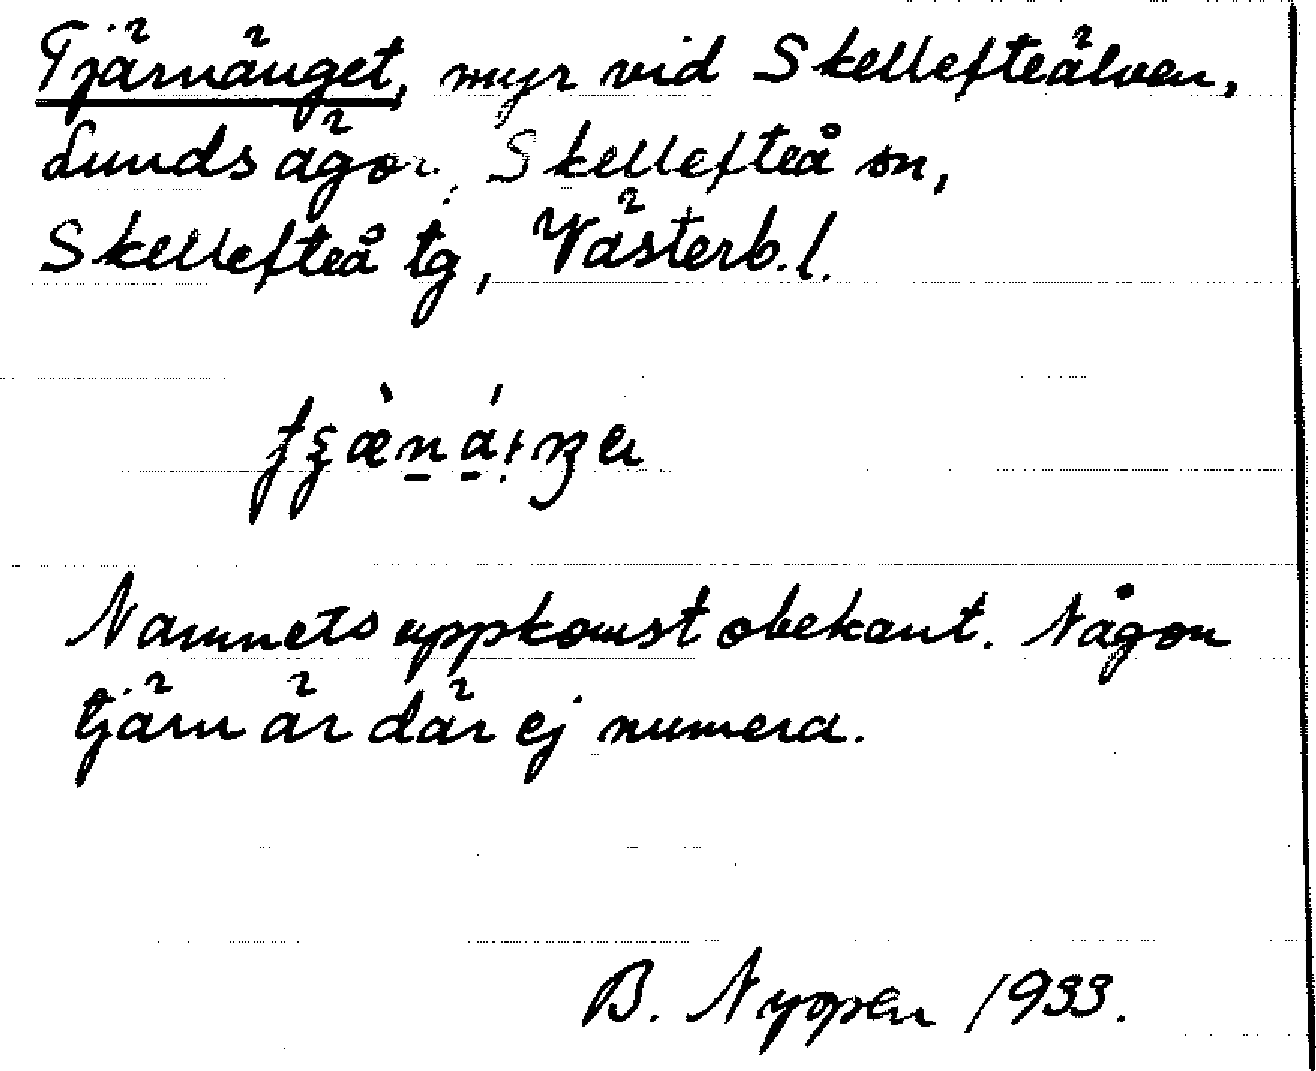 Tjärnänget, myr vid Skellefteälven,
Lunds ägor, Skellefteå sn,
Skellefteå tg, Västerb. l.
Namnets uppkomst obekant. Någon
tjärn är där ej numera.
B. Nyopen 1933.